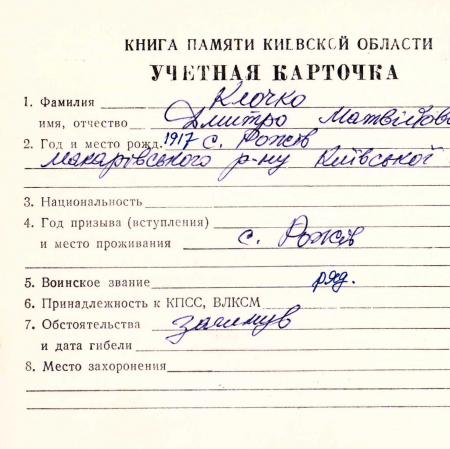 КНИГА ПАМЯТИ КИЕВСКОЙ ОБЛАСТИ
УЧЕТНАЯ КАРТОЧКА
1. Фамилия Клочко
имя, отчество Дмитро Матвійов
2. Год и место рожд. 1917 с. Рожів
Макарівського р-ну Київської
3. Национальность
4. Год призыва (вступления)
и место проживания с. Рожів
5. Воинское звание ряд.
6. Принадлежность к КПСС, ВЛКСМ
7. Обстоятельства загинув
и дата гибели
8. Место захоронения